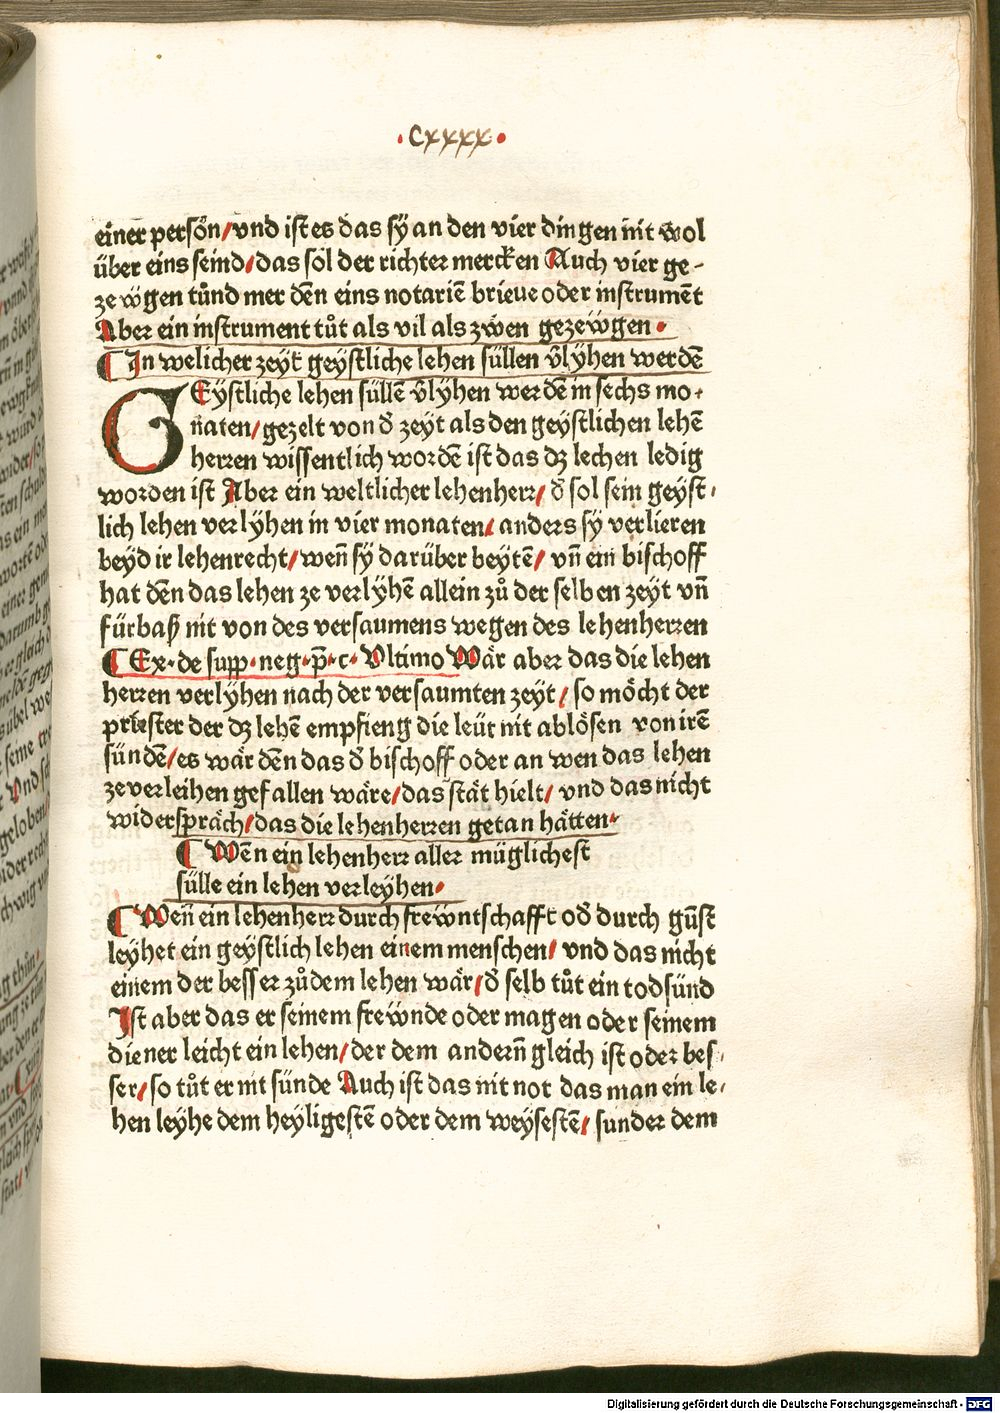 ·cxxxx·
einer persön/vnd ist es das sÿ an den vier dingen nit wol
über eins seind/das sol der richter mercken Auch vier ge-
zeẅgen tůnd mer dēn eins notariē brieue oder instrumēt
Aber ein instrument tůt als vil als zwen gezeẅgen·
¶ In welicher zeyt geÿstliche lehen süllen v̄lÿhen werdē
GEÿstliche lehen süllē v̄lÿhen werdē in sechs mo-
naten/gezelt von d̄ zeÿt als den geÿstlichen lehē
herren wissentlich wordē ist das dz lechen ledig
worden ist Aber ein weltlicher lehenherr/ d̄ sol sein geÿst-
lich lehen verlÿhen in vier monaten/ anders sÿ verlieren
beÿd ir lehenrecht/wen̄ sÿ darüber beytē/ vn̄ ein bischoff
hat dēn das lehen ze verlÿhē allein zů der selben zeÿt vn̄
fürbaß nit von des versaumens wegen des lehenherren
¶ Ex·de supp·neg·p̄·c·Vltimo Wär aber das die lehen
herren verlÿhen nach der versaumten zeÿt/ so möcht der
priester der dz lehē empfieng die leüt nit ablösen von irē
sündē/es wär dēn das d̄ bischoff oder an wen das lehen
ze verleihen gefallen wäre/das stät hielt/ vnd das nicht
widerspräch/das die lehenherren getan hätten·
¶ Wēn ein lehenherr aller müglichest
sülle ein lehen verleÿhen·
¶ Wen̄ ein lehenherr durch freẅntschafft od̄ durch gūst
leÿhet ein geÿstlich lehen einem menschen/ vnd das nicht
einem der besser zůdem lehen wär/d̄ selb tůt ein todsünd
Ist aber das er seinem freẅnde oder magen oder seinem
diener leicht ein lehen/der dem andern̄ gleich ist oder bes-
ser/so tůt er nit sünde Auch ist das nit not das man ein le-
hen leÿhe dem heÿligestē oder dem weÿsestē/ sunder dem
Digitalisierung gefördert durch die Deutsche Forschungsgemeinschaft - DFG